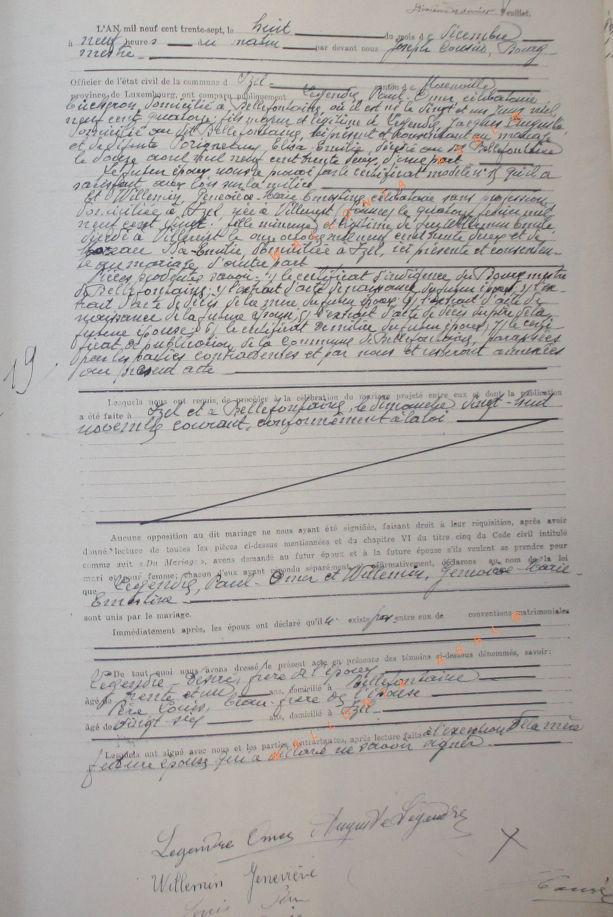 Dixième et dernier Feuillet.
L'AN mil neuf cent trente-sept, le huit du mois de décembre
à neuf heures du matin par devant nous Joseph Bourg-
mestre
Officier de l'état civil de la commune d' Izel canton de
province de Luxembourg, ont comparu publiquement Legendre, Paul-Omer, célibataire
bûcheron, domicilié à Bellefontaine, où il est né le vingt six juin mil
neuf cent quatorze, fils majeur et légitime de Legendre, Jacques Auguste
domicilié au dit Bellefontaine, ici présent et consentant au mariage
et de défunte Elisa Emilie, décédée au dit Bellefontaine
le douze août mil neuf cent trente deux, d'une part
Le futur époux nous a prouvé par le certificat modèle qu'il a
satisfait aux lois sur la milice
Et Willemin, Geneviève-Marie Ernestine, célibataire sans profession
domiciliée à Izel, née à Villers le quatorze février mil
neuf cent vingt, fille mineure et légitime de Willemin Emile
décédé à le onze octobre mil neuf cent trente deux et de
Emilie, domiciliée à Izel, ici présente et consentan-
te au mariage d'autre part
Pièces produites savoir: 1) le certificat d'indigence du Bourgmestre
de Bellefontaine; 2) l'extrait d'acte de naissance du futur époux; 3) l'ex-
trait d'acte de décès de la mère du futur époux; 4) l'extrait d'acte de
naissance de la future épouse; 5) l'extrait d'acte de décès du père de la
future épouse; 6) le certificat de milice du futur époux; 7) le certi-
ficat de publication de la commune de Bellefontaine, paraphées
par les parties contractantes et par nous et resteront annexées
au présent acte
19
Lesquels nous ont requis, de procéder à la célébration du mariage projeté entre eux et dont la publication
a été faite à Izel et à Bellefontaine, le dimanche vingt-huit
novembre courant, conformément à la loi
Aucune opposition au dit mariage ne nous ayant été signifiée, faisant droit à leur réquisition, après avoir
donné lecture de toutes les pièces ci-dessus mentionnées et du chapitre VI du titre cinq du Code civil intitulé
comme suit « Du Mariage », avons demandé au futur époux et à la future épouse s'ils veulent se prendre pour
mari et pour femme; chacun d'eux ayant répondu séparément et affirmativement, déclarons au nom de la loi
que Legendre, Paul-Omer et Willemin, Geneviève-Marie
Ernestine
sont unis par le mariage.
Immédiatement après, les époux ont déclaré qu'il n' existe pas entre eux de conventions matrimoniales
De tout quoi nous avons dressé le présent acte en présence des témoins ci-dessous dénommés, savoir:
Legendre Désiré, frère de l'époux
âgé de trente et un ans, domicilié à Bellefontaine
Louis, beau-frère de l'épouse
âgé de vingt-six ans, domicilié à Izel
Lesquels ont signé avec nous et les parties contractantes, après lecture faite à l'exception de la mère
future épouse qui a déclaré ne savoir signer
Legendre Omer Auguste Legendre
Willemin Geneviève
Louis